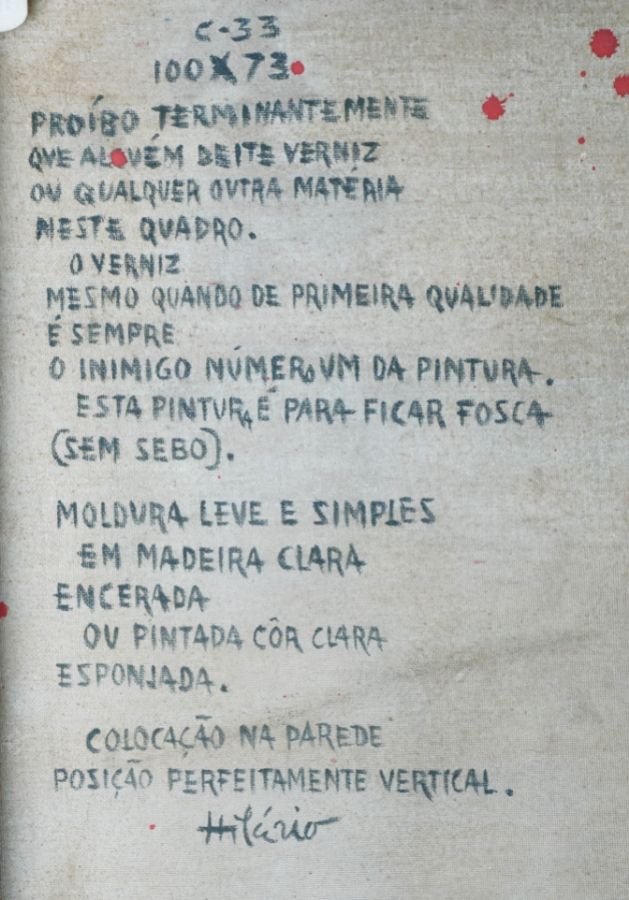 C-33
100X73
PROÍBO TERMINANTEMENTE
QUE ALGUÉM DEITE VERNIZ
OU QUALQUER OUTRA MATÉRIA
NESTE QUADRO.
O VERNIZ
MESMO QUANDO DE PRIMEIRA QUALIDADE
É SEMPRE
O INIMIGO NÚMERO UM DA PINTURA.
ESTA PINTURA É PARA FICAR FOSCA
(SEM SEBO).
MOLDURA LEVE E SIMPLES
EM MADEIRA CLARA
ENCERADA
OU PINTADA CÔR CLARA
ESPONJADA.
COLOCAÇÃO NA PAREDE
POSIÇÃO PERFEITAMENTE VERTICAL.
Hilário